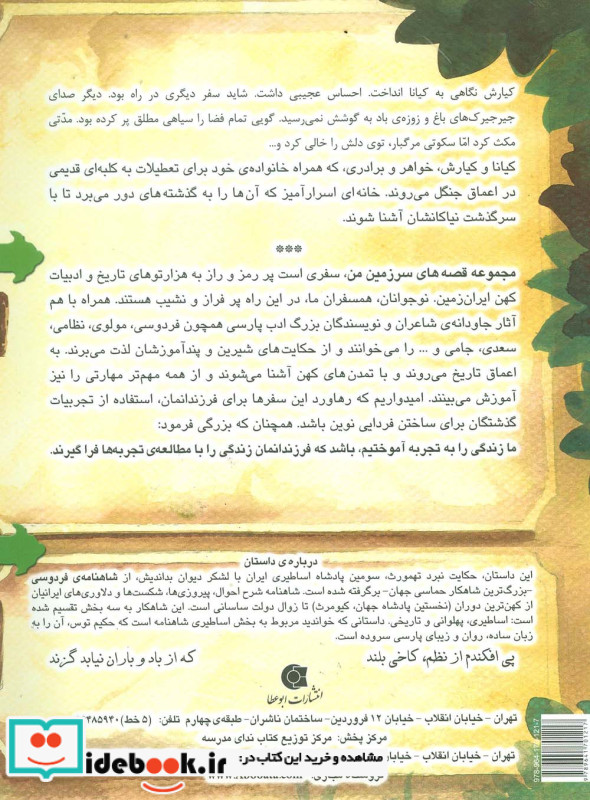 کیارش نگاهی به کیانا انداخت. احساس عجیبی داشت. شاید سفر دیگری در راه بود. دیگر صدای
جیرجیرک‌های باغ و زوزه‌ی باد به گوشش نمی‌رسید. گویی تمام فضا را سیاهی مطلق پر کرده بود. مدّتی
مکث کرد امّا سکوتی مرگبار، توی دلش را خالی کرد و...
کیانا و کیارش، خواهر و برادری، که همراه خانواده‌ی خود برای تعطیلات به کلبه‌ای قدیمی
در اعماق جنگل می‌روند. خانه‌ای اسرارآمیز که آن‌ها را به گذشته‌های دور می‌برد تا با
سرگذشت نیاکانشان آشنا شوند.
***
مجموعه قصه های سرزمین من، سفری است پر رمز و راز به هزارتوهای تاریخ و ادبیات
کهن ایران‌زمین. نوجوانان، همسفران ما، در این راه پر فراز و نشیب هستند. همراه با هم
آثار جاودانه‌ی شاعران و نویسندگان بزرگ ادب پارسی همچون فردوسی، مولوی، نظامی،
سعدی، جامی و ... را می‌خوانند و از حکایت‌های شیرین و پندآموزشان لذت می‌برند. به
اعماق تاریخ می‌روند و با تمدن‌های کهن آشنا می‌شوند و از همه مهم‌تر مهارتی را نیز
آموزش می‌بینند. امیدواریم که رهاورد این سفرها برای فرزندانمان، استفاده از تجربیات
گذشتگان برای ساختن فردایی نوین باشد. همچنان که بزرگی فرمود:
ما زندگی را به تجربه آموختیم، باشد که فرزندانمان زندگی را با مطالعه‌ی تجربه‌ها فرا گیرند.
درباره‌ی داستان
این داستان، حکایت نبرد تهمورث، سومین پادشاه اساطیری ایران با لشکر دیوان بداندیش، از شاهنامه‌ی فردوسی
-بزرگ‌ترین شاهکار حماسی جهان- برگرفته شده است. شاهنامه شرح احوال، پیروزی‌ها، شکست‌ها و دلاوری‌های ایرانیان
از کهن‌ترین دوران (نخستین پادشاه جهان، کیومرث) تا زوال دولت ساسانی است. این شاهکار به سه بخش تقسیم شده
است: اساطیری، پهلوانی و تاریخی. داستانی که خواندید مربوط به بخش اساطیری شاهنامه است که حکیم توس، آن را به
زبان ساده، روان و زیبای پارسی سروده است.
پی افکندم از نظم، کاخی بلند که از باد و باران نیابد گزند
انتشارات ابوعطا
تهران - خیابان انقلاب - خیابان ۱۲ فروردین- ساختمان ناشران- طبقه‌ی چهارم تلفن: (۵ خط)
مرکز پخش: مرکز توزیع کتاب ندای مدرسه
تهران - خیابان انقلاب - خیابان
مشاهده و خرید این کتاب در:
idebook.ir